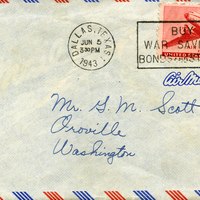 DALLAS, TEXAS
JUN 5
8:30 PM
1943
BUY
WAR SAVI
BONDS
UNITED
Air Mail
Mr. G. M. Scott
Oroville
Washington